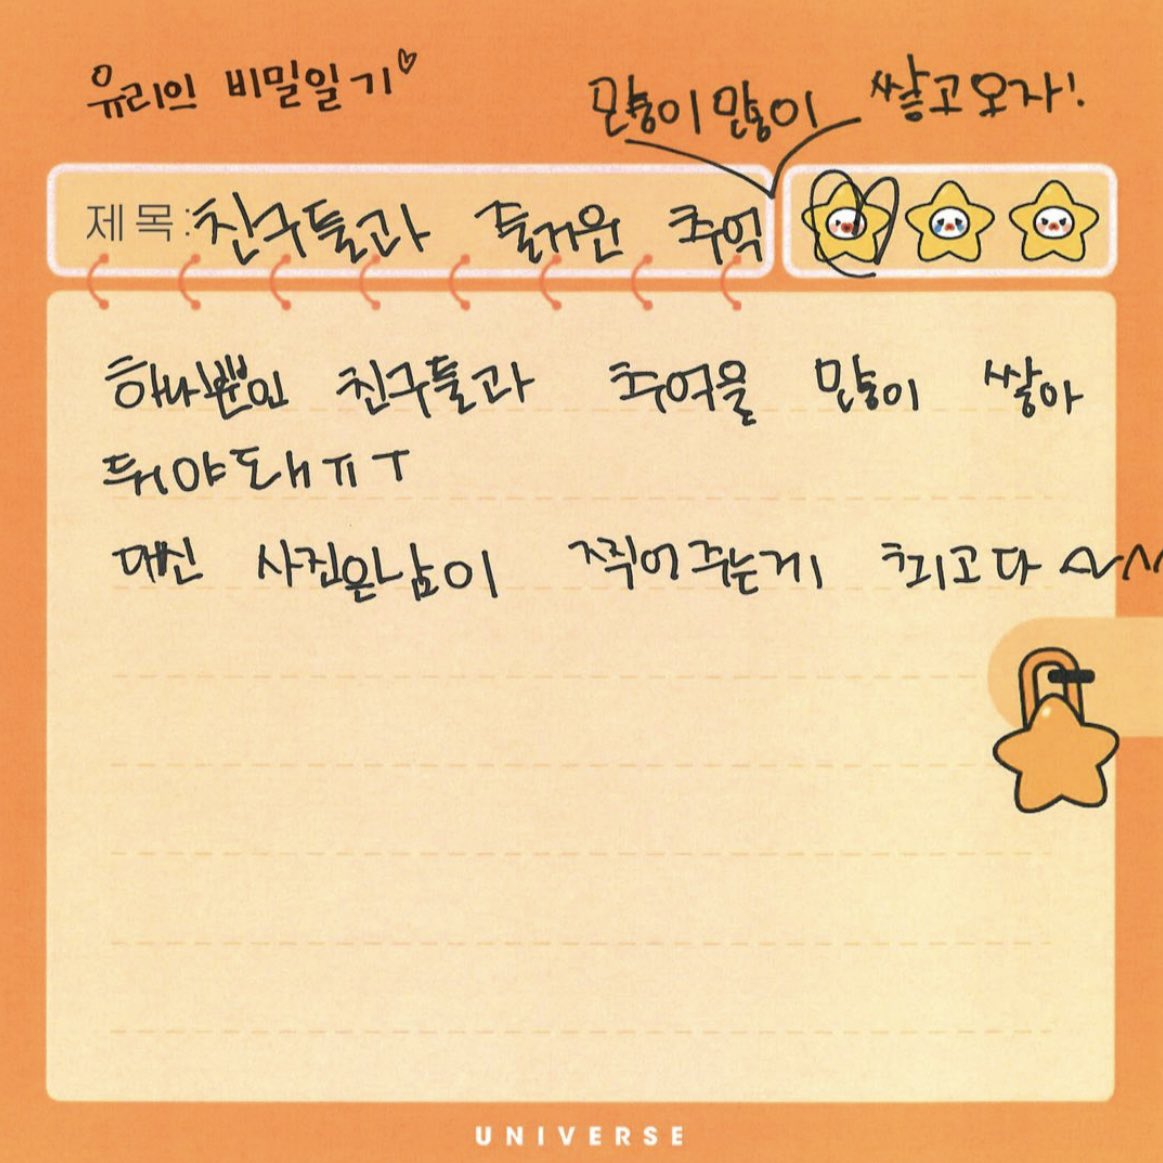 유리의 비밀일기♡
많이 많이 쌓고 오자!
제목: 친구들과 즐거운 추억
하나뿐인 친구들과 추억을 많이 쌓아
둬야 돼 ㅠㅜ
대신 사진은 남이 찍어주는게 최고다
UNIVERSE